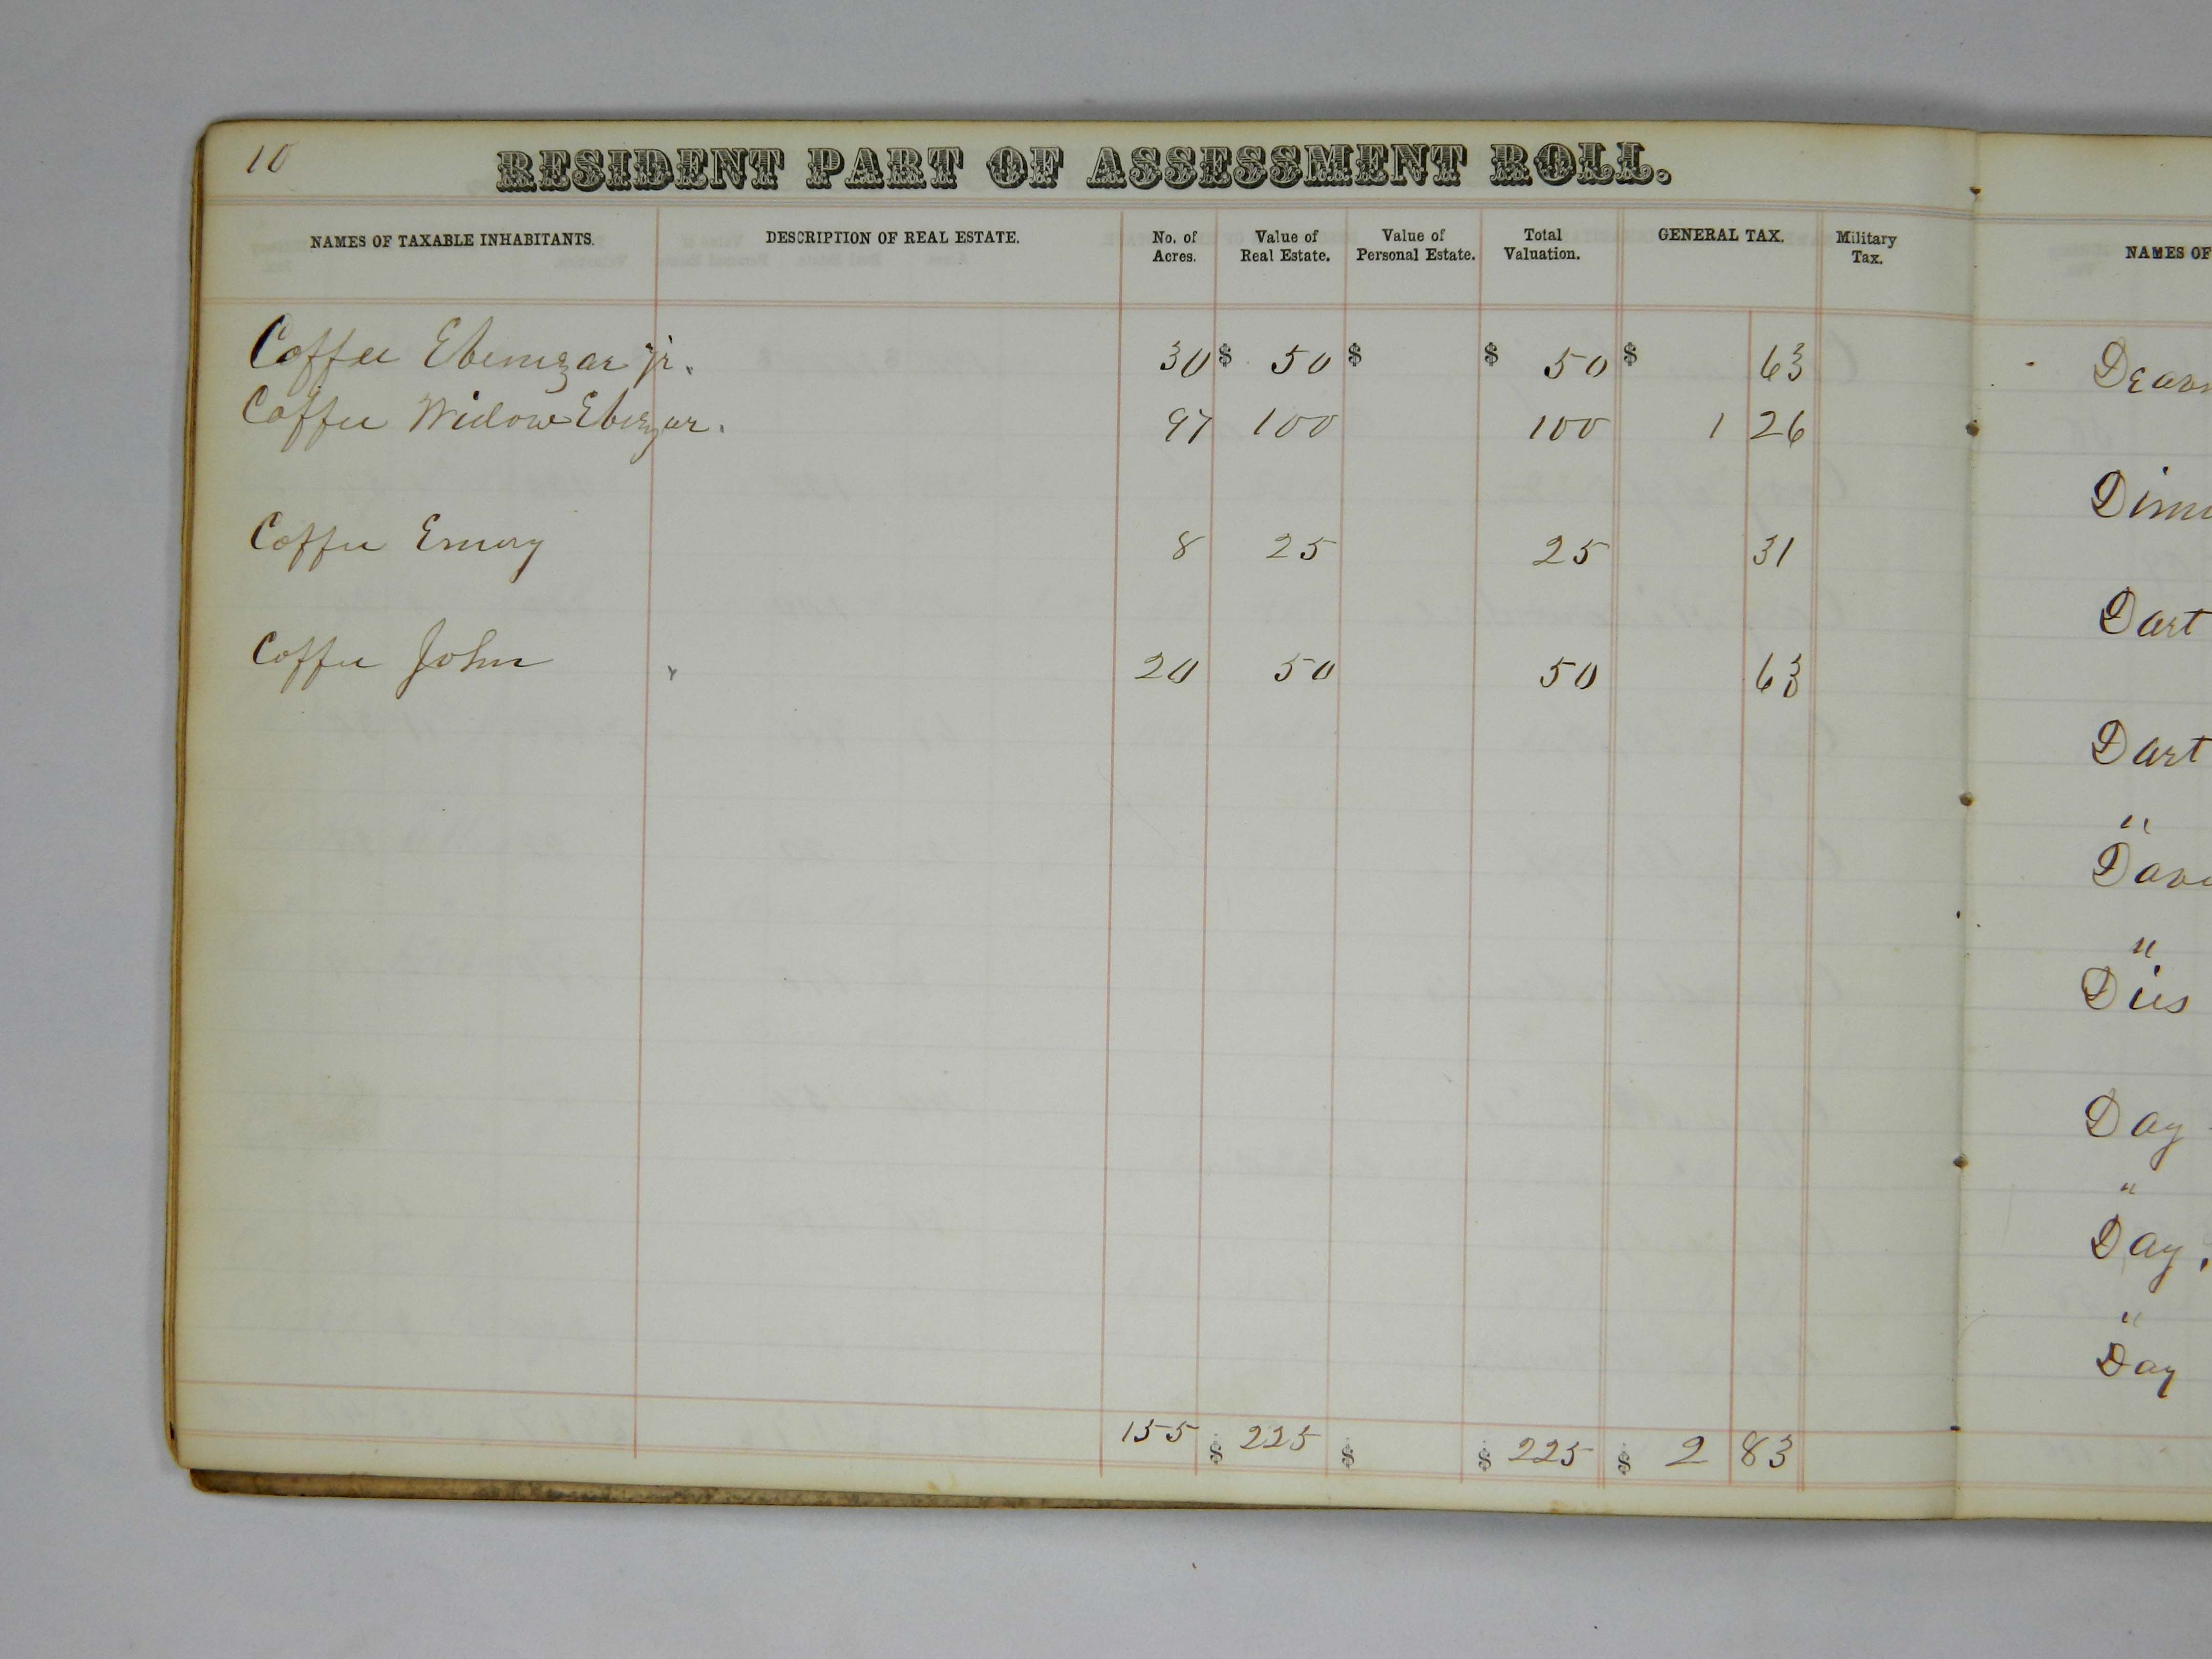 10
RESIDENT PART OF ASSESSMENT ROLL.
NAMES OF TAXABLE INHABITANTS. DESCRIPTION OF REAL ESTATE. No. of Acres. Value of Real Estate. Value of Personal Estate. Total Valuation. GENERAL TAX. Military Tax.
Coffee Ebenezar jr. 30 $ 50 $ $ 50 $ 63
Coffee Widow Ebezar. 97 100 100 1 26
Coffee Emery 8 25 25 31
Coffee John 20 50 50 63
155 $ 225 $ $ 225 $ 2 83
NAMES OF
Dart
Dart
"
"
Dies
Day
"
Day
"
Day